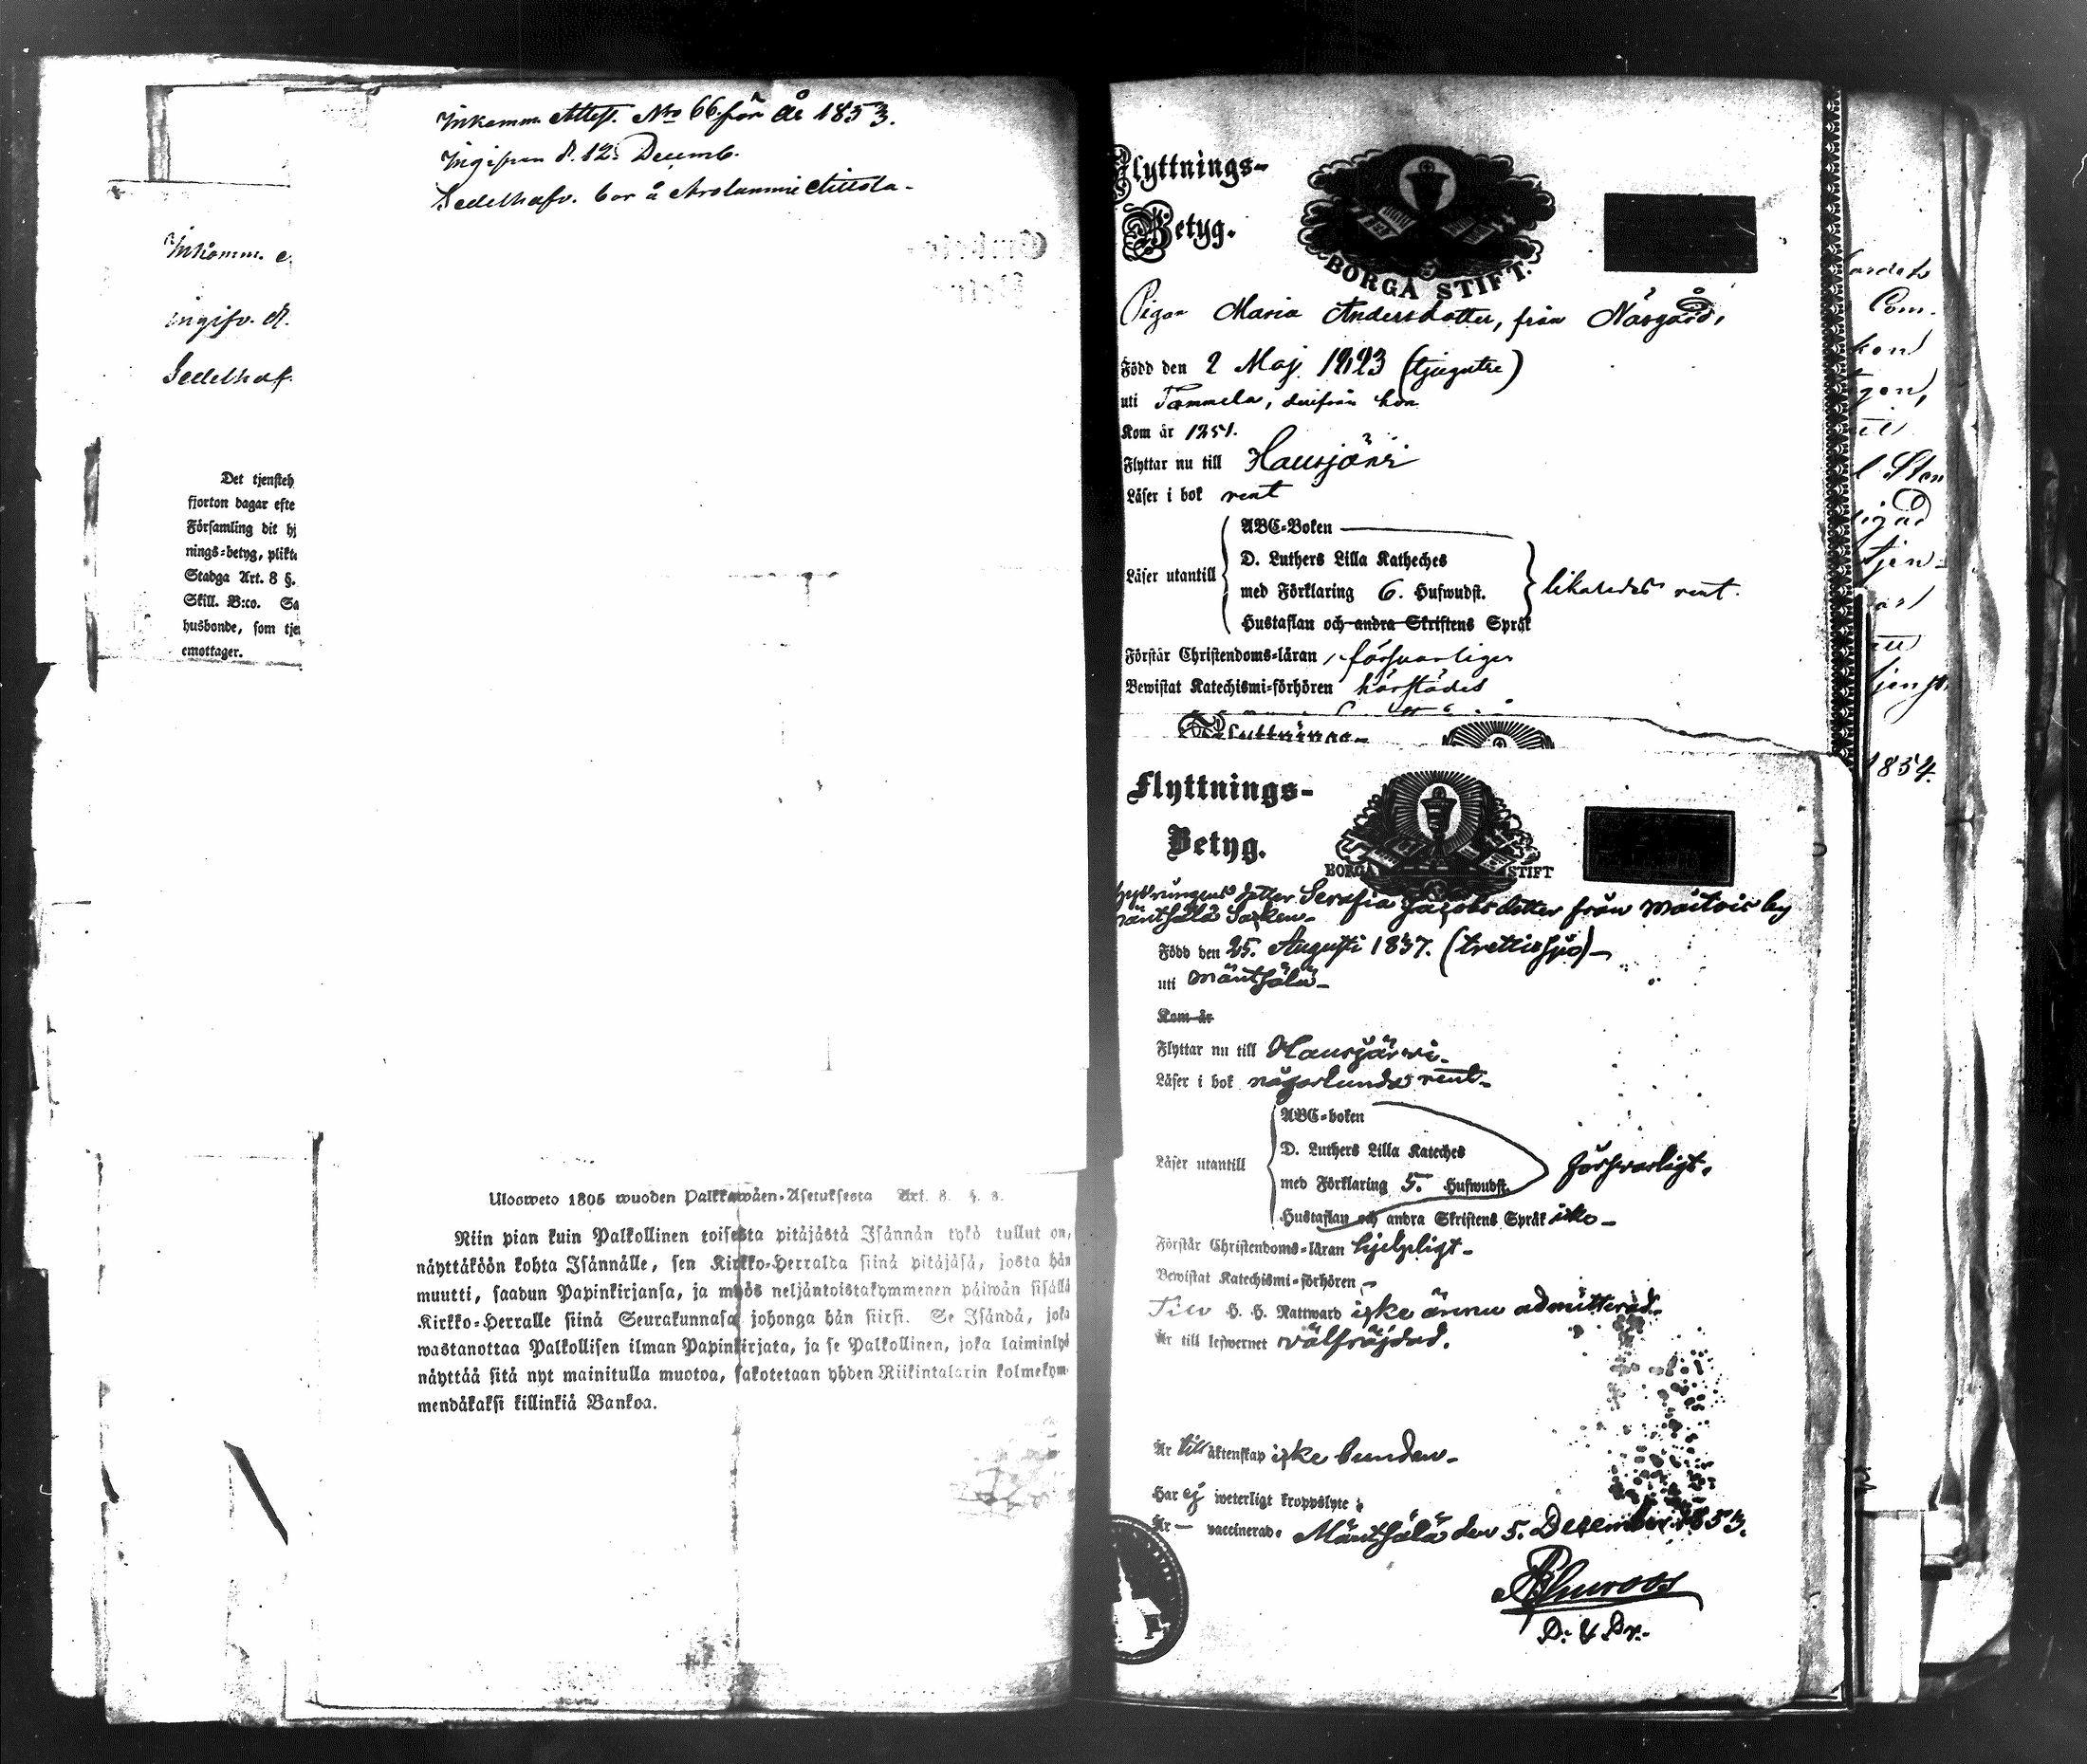 Inkomm. Attest. No 66 för år 1853.
Ingifven d. 12 Decemb.
Sedelhafv. bor å Arolammi Attola
Inkomm.
ingifv. d.
Sedelhaf.
Det tjensteh
fjorton dagar efte
Församling dit hj
nings-betyg, plikta
Stadga Art. 8 §.
Skill. B:co. Sa
husbonde, som tje
emottager.
Ulosweto 1805 wuoden Palkkawäen-Asetuksesta Art. 8. §. 8.
Niin pian kuin Palkollinen toisesta pitäjästä Isännän tykö tullut on,
näyttäköön kohta Isännälle, sen Kirkko-Herralda siinä pitäjäsä, josta hän
muutti, saadun Papinkirjansa, ja myös neljäntoistakymmenen päiwän sisällä
Kirkko-Herralle siinä Seurakunnasa johonga hän siirsi. Se Isändä, joka
wastanottaa Palkollisen ilman Papinkirjata, ja se Palkollinen, joka laiminlyö
näyttää sitä nyt mainitulla muotoa, sakotetaan yhden Riikintalarin kolmekym-
mendäkaksi killinkiä Bankoa.
Flyttnings-
Betyg.
BORGÅ STIFT.
Pigan Maria Andersdotter, från Näsgård,
Född den 2 Maj 1823 (tjugutre)
uti Tammela, derifrån hon
Kom år 1851.
Flyttar nu till Hausjärvi
Läser i bok rent
ABC-Boken
D. Luthers Lilla Katheches
Läser utantill
med Förklaring 6. Hufwudst.
likaledes rent.
Hustaflan och andra Skriftens Språk
Förstår Christendoms-läran försvarligen
Bewistat Katechismi-förhören härstädes
Flyttnings-
Flyttnings-
Betyg.
BORGÅ STIFT
dotter Serafia Jacobsdotter från by
Född den 25. Augusti 1837. (trettiosju)
uti Mäntsälä
Kom år
Flyttar nu till Hausjärvi.
Läser i bok någorlunda rent
ABC-boken
D. Luthers Lilla Kateches
Läser utantill
försvarligt.
med Förklaring 5. Hufwudst.
Hustaflan och andra Skriftens Språk icke
Förstår Christendoms-läran hjelpligt
Bewistat Katechismi-förhören
Till H. H. Nattward icke ännu admitterad.
Är till lefwernet välfräjdad.
Är till äktenskap icke bunden
Har ej weterligt kroppslyte
Är vaccinerad. Mäntsälä den 5. December 1853.
Com.
1854.